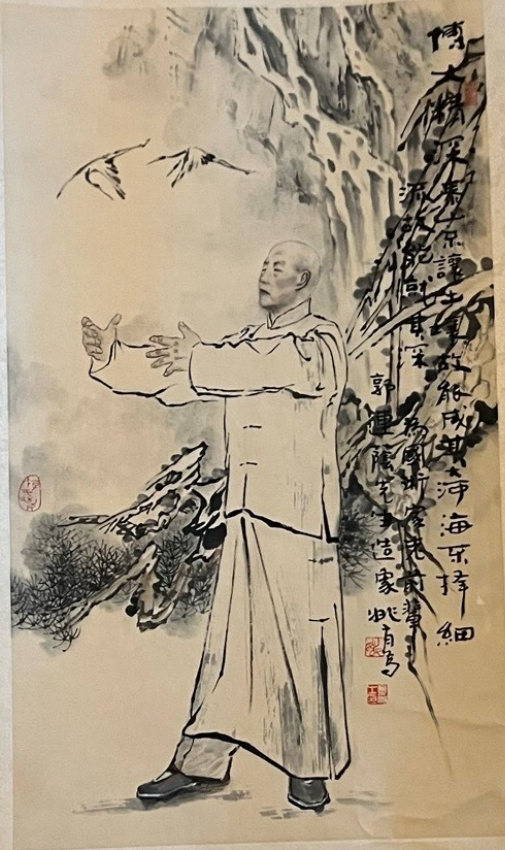 博大精深泰山不讓土壤故能成其大河海不择細
流故能就其深
為國術家老前輩
郭連蔭先生造象姚有多